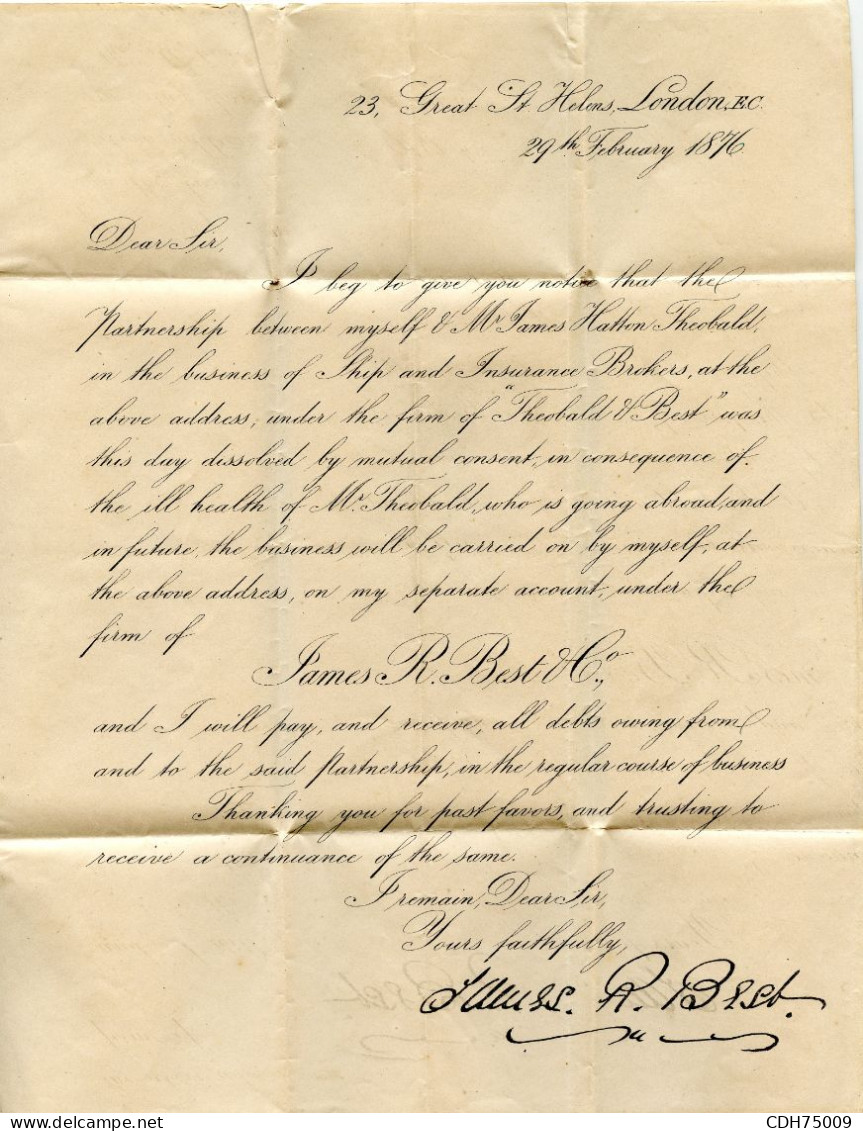 23, Great St. Helens, London, E.C.
29th February 1876
Dear Sir,
I beg to give you notice that the
Partnership between myself & Mr. James Hatton Theobald,
in the business of Ship and Insurance Brokers, at the
above address, under the firm of "Theobald & Best" was
this day dissolved by mutual consent, in consequence of
the ill health of Mr. Theobald, who is going abroad, and
in future, the business will be carried on by myself, at
the above address, on my separate account, under the
firm of
James R. Best & Co.,
and I will pay, and receive, all debts owing from
and to the said Partnership, in the regular course of business
Thanking you for past favors, and trusting to
receive a continuance of the same.
I remain, Dear Sir,
Yours faithfully,
James. R. Best.
CDH75009